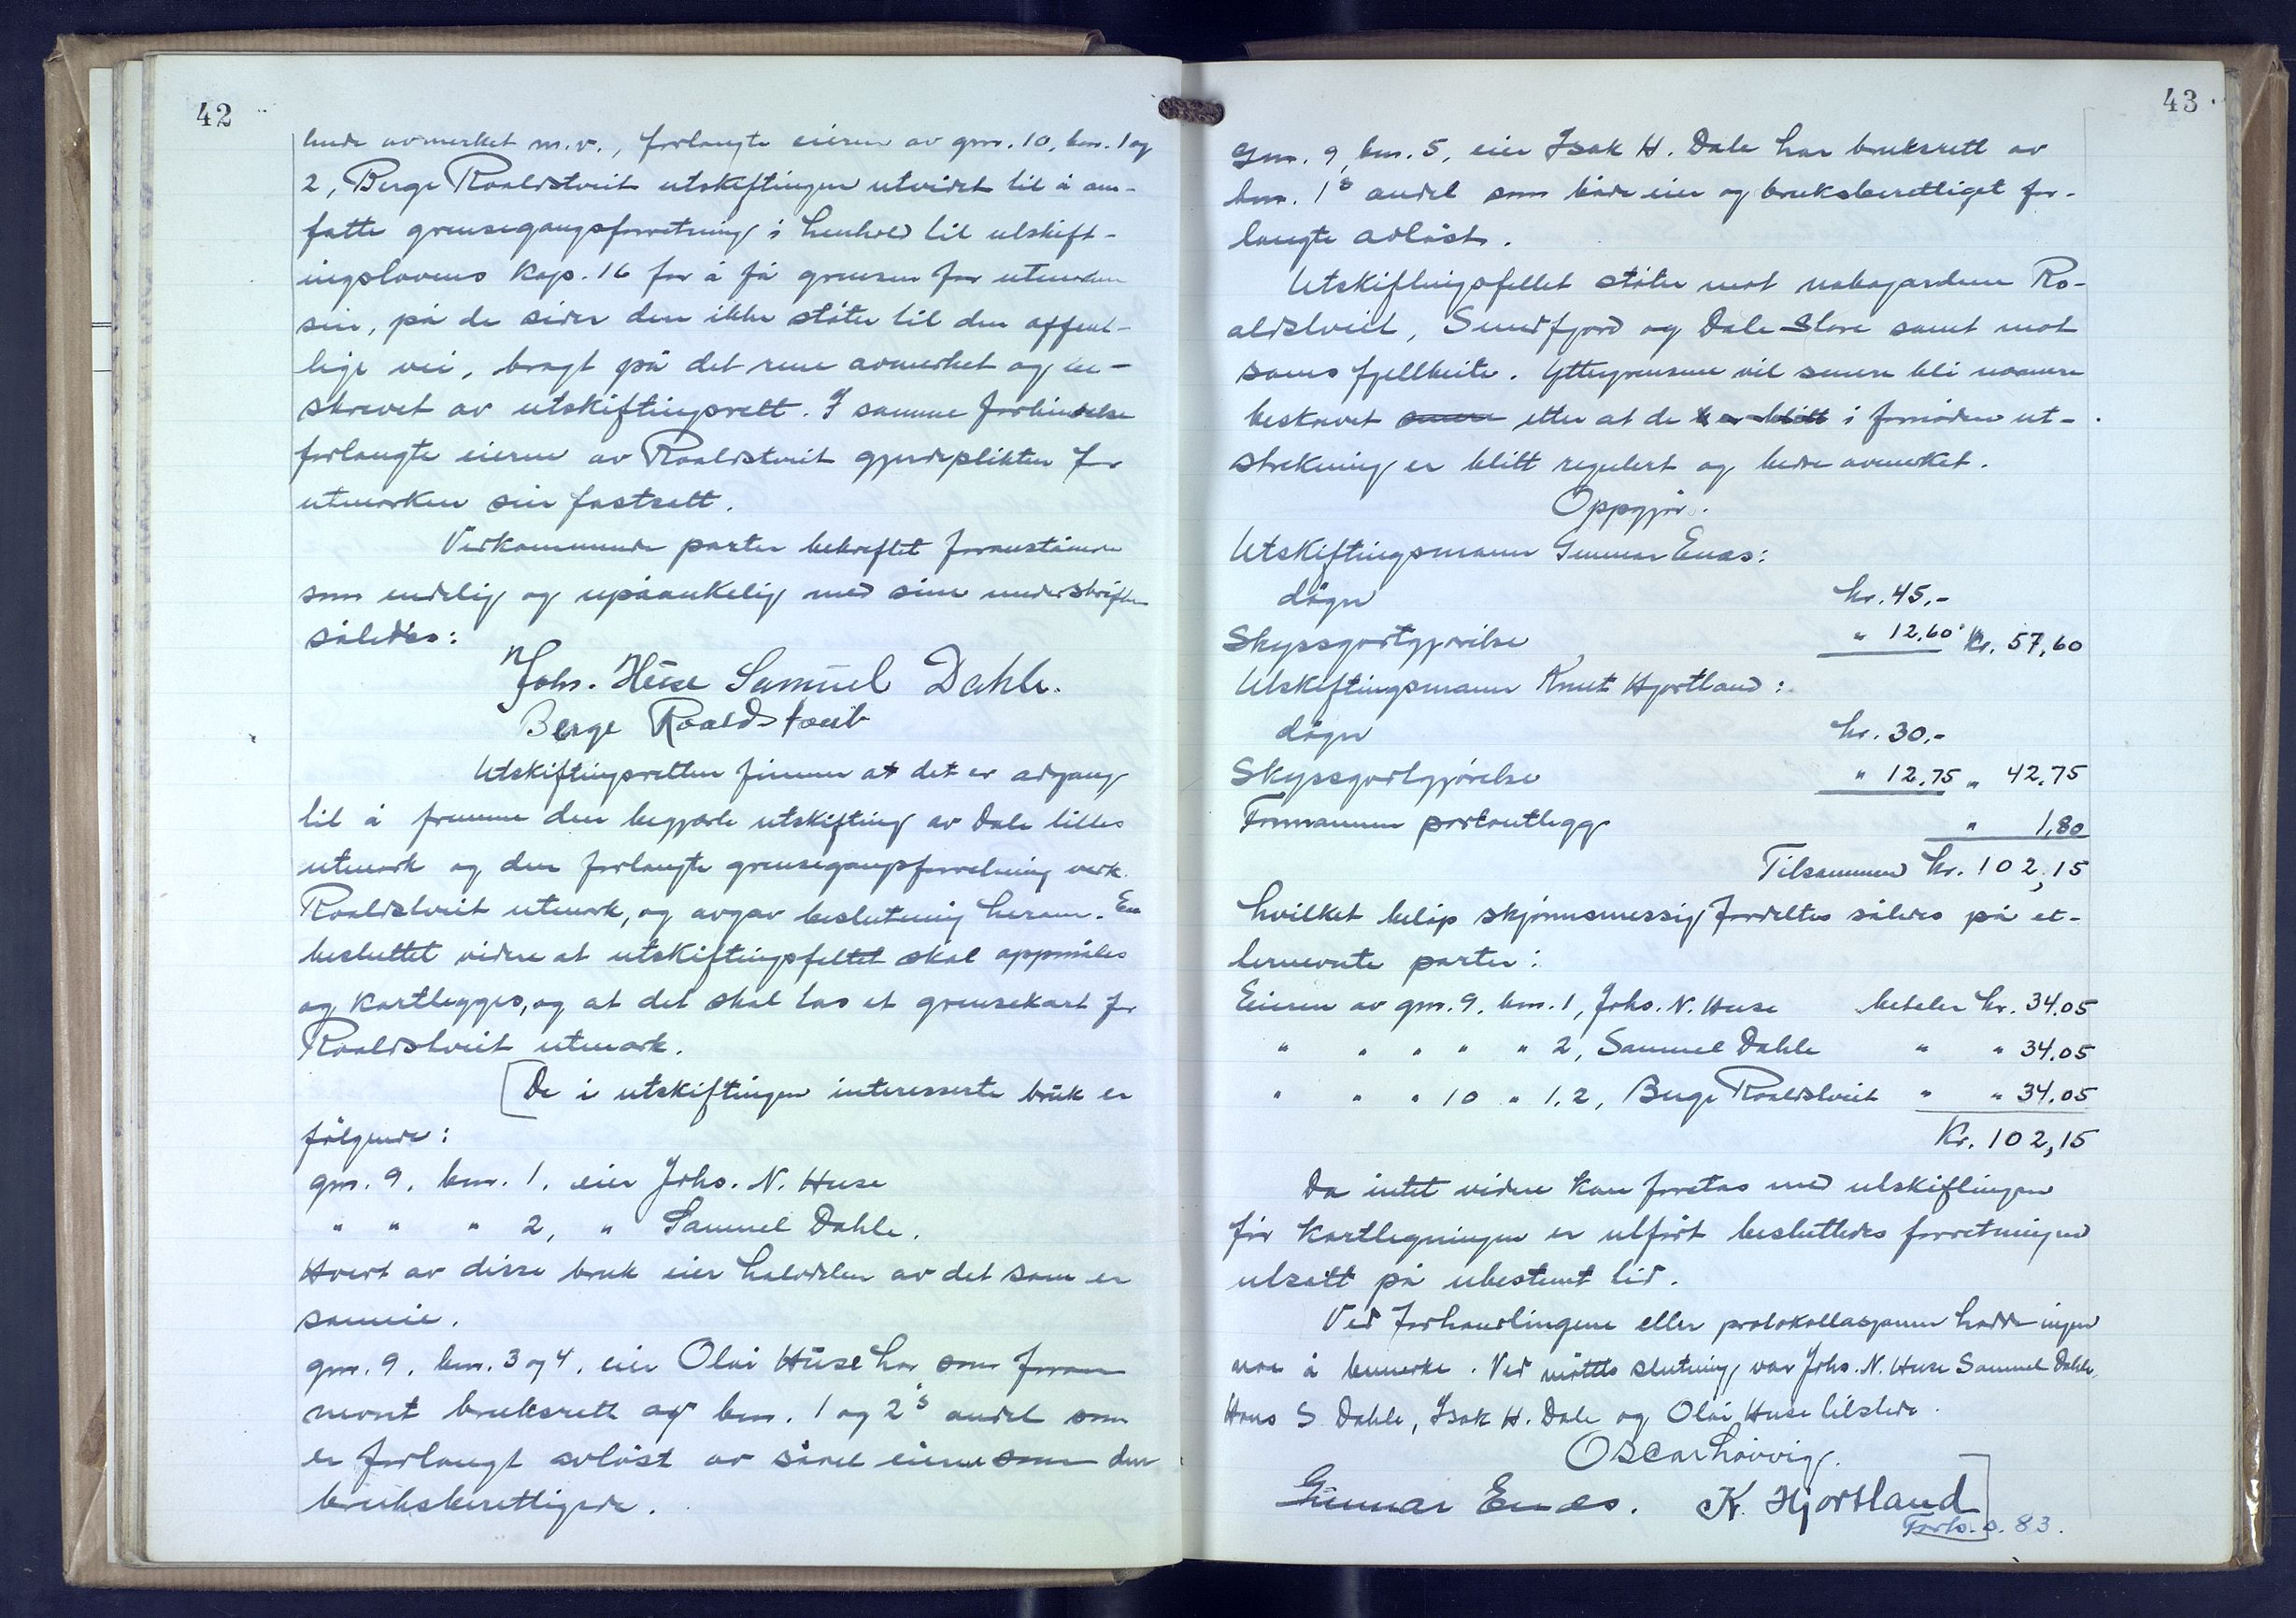 42
lende avmerket m.v., forlangte eieren av gnr. 10, bnr. 1 og
2, Berge Roaldstveit utskiftingen utvidet til å om-
fatte grensegangsforretning i henhold til utskift-
ingslovens Kap. 16 for å få grensen for utmarken
sin, på de sider den ikke støter til den offent-
lige vei, bragt på det rene avmerket og be-
skrevet av utskiftingsrett. I samme forbindelse
forlangte eieren av Roaldstveit gjerdeplikten for
utmarken sin fastsatt.
Vedkommende parter bekreftet foranstående
som endelig og upåankelig med sine underskrifter
således:
Johs. N. Huse Samuel Dahle.
Berge Roaldstveit
Utskiftingsretten finner at det er adgang
til å fremme den begjærte utskifting av Dale lilles
utmark og den forlangte grensegangsforretning vedk.
Roaldstveit utmark, og avgav beslutning herom. En
besluttet videre at utskiftingsfeltet skal oppmåles
og kartlegges, og at det skal tas et grensekart for
Roaldstveit utmark.
De i utskiftingen interesserte bruk er
følgende:
gnr. 9, bnr. 1, eier Johs. N. Huse
" " " 2, " Samuel Dahle.
Hvert av disse bruk eier halvdelen av det som er
sameie.
gnr. 9, bnr. 3 og 4, eier Olai Huse har som foran
nevnt bruksrett av bnr. 1 og 2's andel som
er forlangt avløst av såvel eierne som den
bruksberettigede.
43
Gnr. 9, bnr. 5, eier Isak H. Dale har bruksrett av
bnr. 1's andel som både eier og bruksberettiget for-
langte avløst.
Utskiftingsfeltet støter mot nabogardene Ro-
aldstveit, Smedfjord og Dale Store samt mot
sams fjellbeite. Yttergrensene vil senere bli nærmere
beskrevet senere etter at de er blitt i fornøden ut-
strekning er blitt regulert og bedre avmerket.
Oppgjør.
Utskiftingsmann Gunnar Enæs:
døgn kr. 45,-
Skyssgodtgjørelse " 12,60 Kr. 57,60
Utskiftingsmann Knut Hjortland:
døgn kr. 30,-
Skyssgodtgjørelse " 12,75 " 42,75
Formannen portoutlegg " 1,80
Tilsammen kr. 102,15
hvilket beløp skjønnsmessig fordeltes således på et-
ternevnte parter:
Eieren av gnr. 9, bnr. 1, Johs. N. Huse betaler kr. 34,05
" " " " " 2, Samuel Dahle " " 34,05
" " " 10 " 1,2, Berge Roaldstveit " " 34,05
Kr. 102,15
Da intet videre kan foretas med utskiftingen
før kartlegningen er utført besluttedes forretningen
utsatt på ubestemt tid.
Ved forhandlingene eller protokollasjonen hadde ingen
noe å bemerke. Ved møttets slutning var Johs. N. Huse Samuel Dahle,
Hans S Dahle, Isak H. Dale og Olai Huse tilstede.
Oscar Løvvig.
Gunnar Enæs. K. Hjortland
Forts. s. 83.